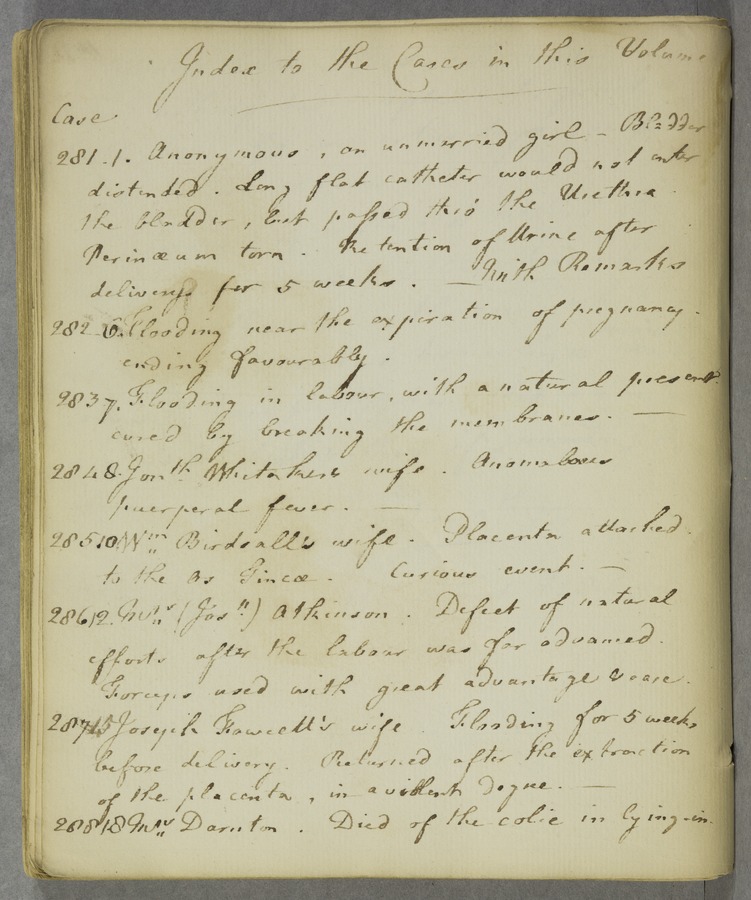 Index to the Cases in this Volume
Case
281.1. Anonymous, an unmarried girl - Bladder
distended. Long flat catheter would not enter
the bladder, but passed thro' the Urethra.
Perinæum torn. Retention of Urine after
delivery for 5 weeks. — With Remarks
282 6. Flooding near the expiration of pregnancy.
ending favourably.
283 7. Flooding in labour, with a natural present.
cured by breaking the membranes. —
284 8. Jonth. Whitaker's wife. Anomalous
puerperal fever. —
285 10 Wm. Birdsall's wife. Placenta attached.
to the Os Tincæ. Curious event. —
286 12. Mrs. (Josh.) Atkinson. Defect of natural
efforts after the labour was far advanced.
Forceps used with great advantage & ease.
287 15 Joseph Fawcett's wife. Flooding for 5 weeks
before delivery. Returned after the extraction
of the placenta, in a violent degree. —
288 18 Mrs. Darnton. Died of the colic in lying-in.